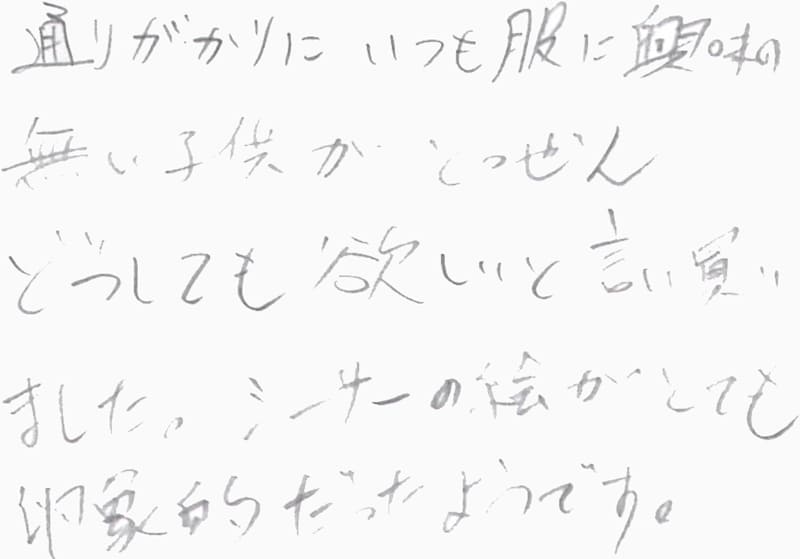 通りがかりに いつも服に興味の
無い子供が とつぜん
どうしても 欲しいと言い買い
ました。シーサーの絵がとても
印象的だったようです。